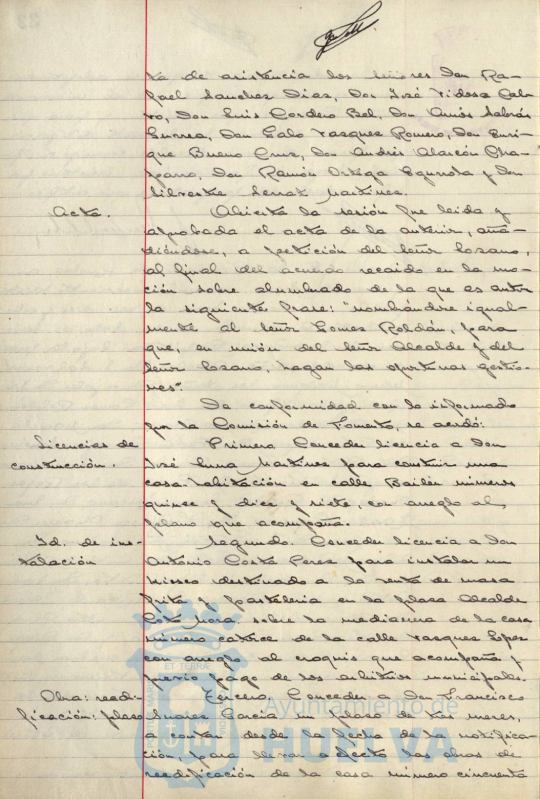 ta de asistencia los señores Don Ra-
fael Sanchez Diaz, Don José Vidosa Cal-
vo, Don Luis Cordero Bel, Don Amós Sabrás
Gurrea, Don Galo Vazquez Romero, Don Enri-
que Bueno Cruz, Don Andrés Alarcón Cha-
parro, Don Ramón Ortega Ezquiota y Don
Silvestre Serrat Martinez.
Acta.
Abierta la sesión fue leida y
aprobada el acta de la anterior, aña-
diéndose, a petición del Señor Lozano,
al final del acuerdo recaido en la mo-
ción sobre alumbrado de la que es autor
la siguiente frase: "nombrándose igual-
mente al Señor Gomez Roldán, para
que, en unión del Señor Alcalde y del
Señor Lozano, hagan las oportunas gestio-
nes".
De conformidad con lo informado
por la Comisión de Fomento, se acordó:
Licencias de
construcción.
Primero. Conceder licencia a Don
José Luna Martinez para construir una
casa-habitación en calle Bailén números
quince y diez y siete, con arreglo al
plano que acompaña.
Id. de ins-
talación
Segundo. Conceder licencia a Don
Antonio Costa Perez para instalar un
kiosco destinado a la venta de masa
frita y pastelería en la plaza Alcalde
Coto Mora sobre la medianera de la casa
número catorce de la calle Vazquez Lopez
con arreglo al croquis que acompaña y
previo pago de los arbitrios municipales.
Obra: reedi-
ficación: plazo
Tercero. Conceder a Don Francisco
Suarez García un plazo de tres meses,
a contar desde la fecha de la notifica-
ción, para llevar a efecto las obras de
reedificación de la casa número cincuenta
Ayuntamiento de
HUELVA
ET TERRA